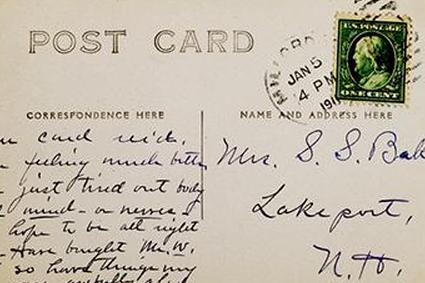 POST CARD
U.S. POSTAGE
ONE CENT
JAN 5
4 PM
191
CORRESPONDENCE HERE
card rec'd.
feeling much
just tired out body
mind - or nerves -
hope to be all right
Have bought Mr. W.
so have things my
NAME AND ADDRESS HERE
Mrs. S. S. Bak
Lakeport,
N. H.